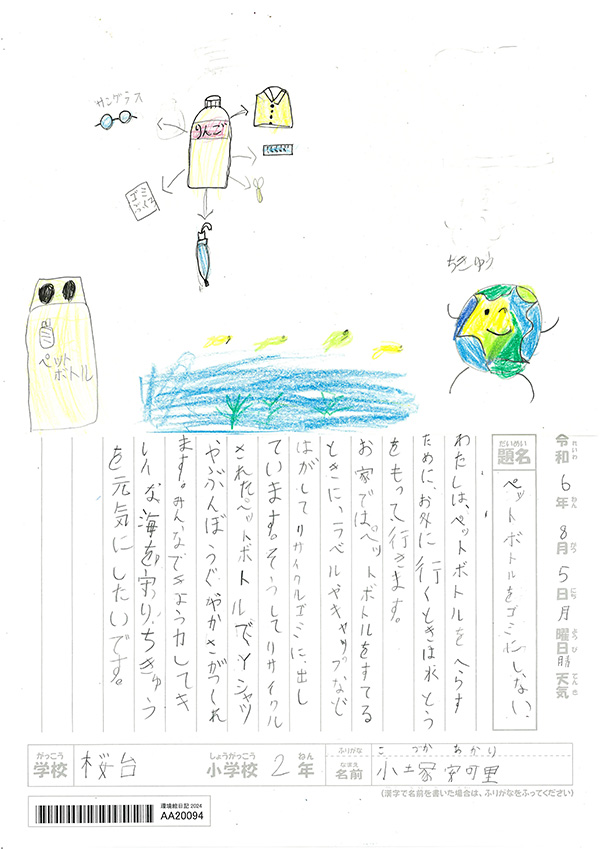 サングラス
りんご
ゴミ
ちきゅう
ペット
ボトル
令和6年8月5日月曜日 天気
れいわ ねん がつ にち ようび てんき
だいめい
題名 ペットボトルをゴミにしない、
わたしは、ペットボトルをへらす
ために、お外に行くときは水とう
をもって行きます。
お家では、ペットボトルをすてる
ときに、ラベルやキャップなど
はがしてリサイクルゴミに、出し
ています。そうしてリサイクル
されたペットボトルでYシャツ
やぶんぼうぐやかさがつくれ
ます。みんなできょう力してき
れいな海を守り、ちきゅう
を元気にしたいです。
がっこう しょうがっこう ねん ふりがな こづか あかり
学校 桜台 小学校 2年 なまえ 名前 小塚 里
(漢字で名前を書いた場合は、ふりがなをふってください)
環境絵日記2024
AA20094